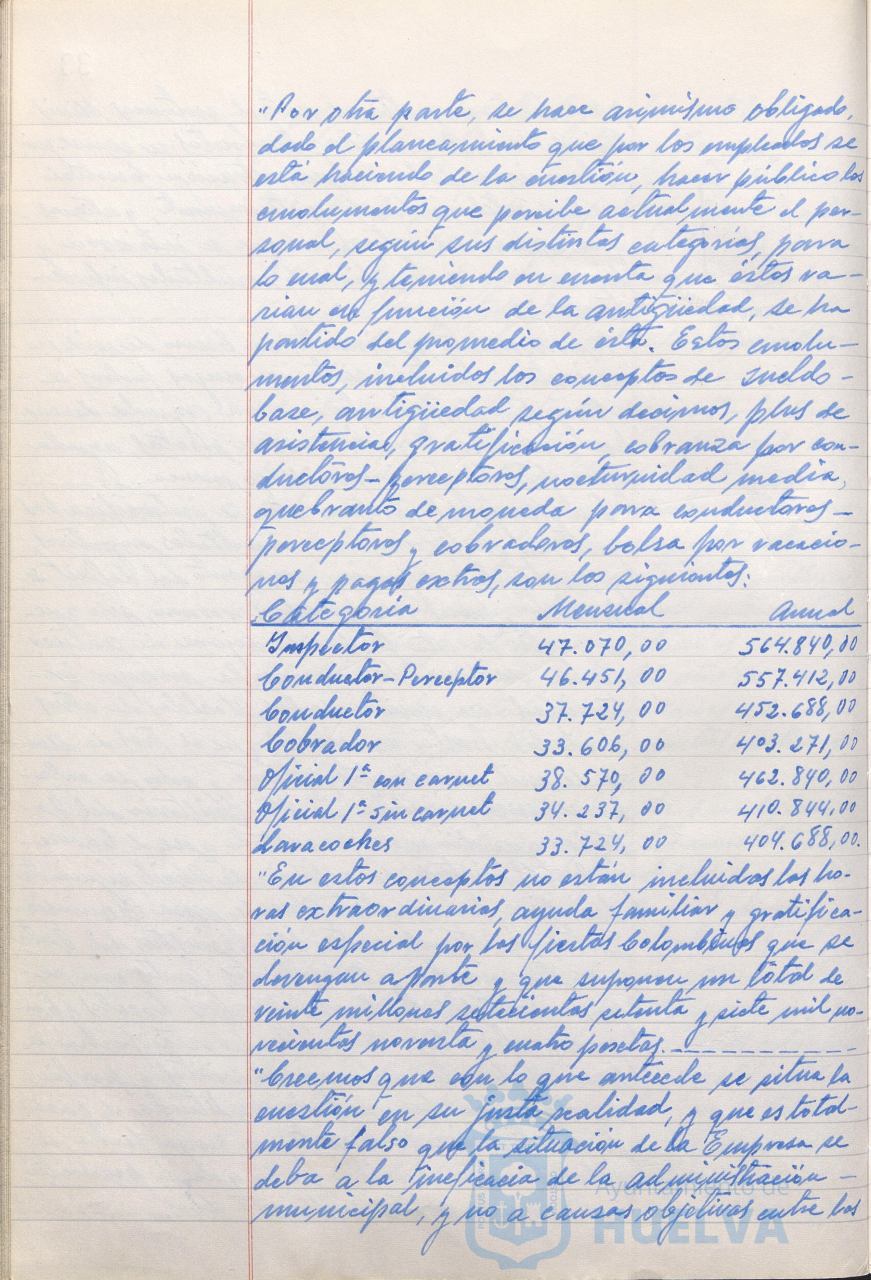 "Por otra parte, se hace asimismo obligado,
dado el planeamiento que por los empleados se
está haciendo de la cuestión, hacer público los
emolumentos que percibe actualmente el per-
sonal, según sus distintas categorías, para
lo cual, y teniendo en cuenta que éstos va-
rian en función de la antigüedad, se ha
partido del promedio de ésta. Estos emolu-
mentos, incluidos los conceptos de sueldo-
base, antigüedad según decimos, plus de
asistencia, gratificación, cobranza por con-
ductores-perceptores, nocturnidad media,
quebranto de moneda para conductores-
perceptores y cobradores, bolsa por vacacio-
nes y pagas extras, son los siguientes:
Categoría Mensual Anual
Inspector 47.070,00 564.840,00
Conductor-Perceptor 46.451,00 557.412,00
Conductor 37.724,00 452.688,00
Cobrador 33.606,00 403.271,00
Oficial 1ª con carnet 38.570,00 462.840,00
Oficial 1ª sin carnet 34.237,00 410.844,00
Lavacoches 33.724,00 404.688,00.
"En estos conceptos no están incluidos las ho-
ras extraordinarias, ayuda familiar y gratifica-
ción especial por las fiestas Colombinas que se
devengan aparte y que suponen un total de
veinte millones setecientas setenta y siete mil no-
vecientas noventa y cuatro pesetas.----------
"Creemos que con lo que antecede se situa la
cuestión en su justa realidad, y que es total-
mente falso que la situación de la Empresa se
deba a la ineficacia de la administración-
municipal, y no a causas objetivas entre las
Ayuntamiento de
HUELVA